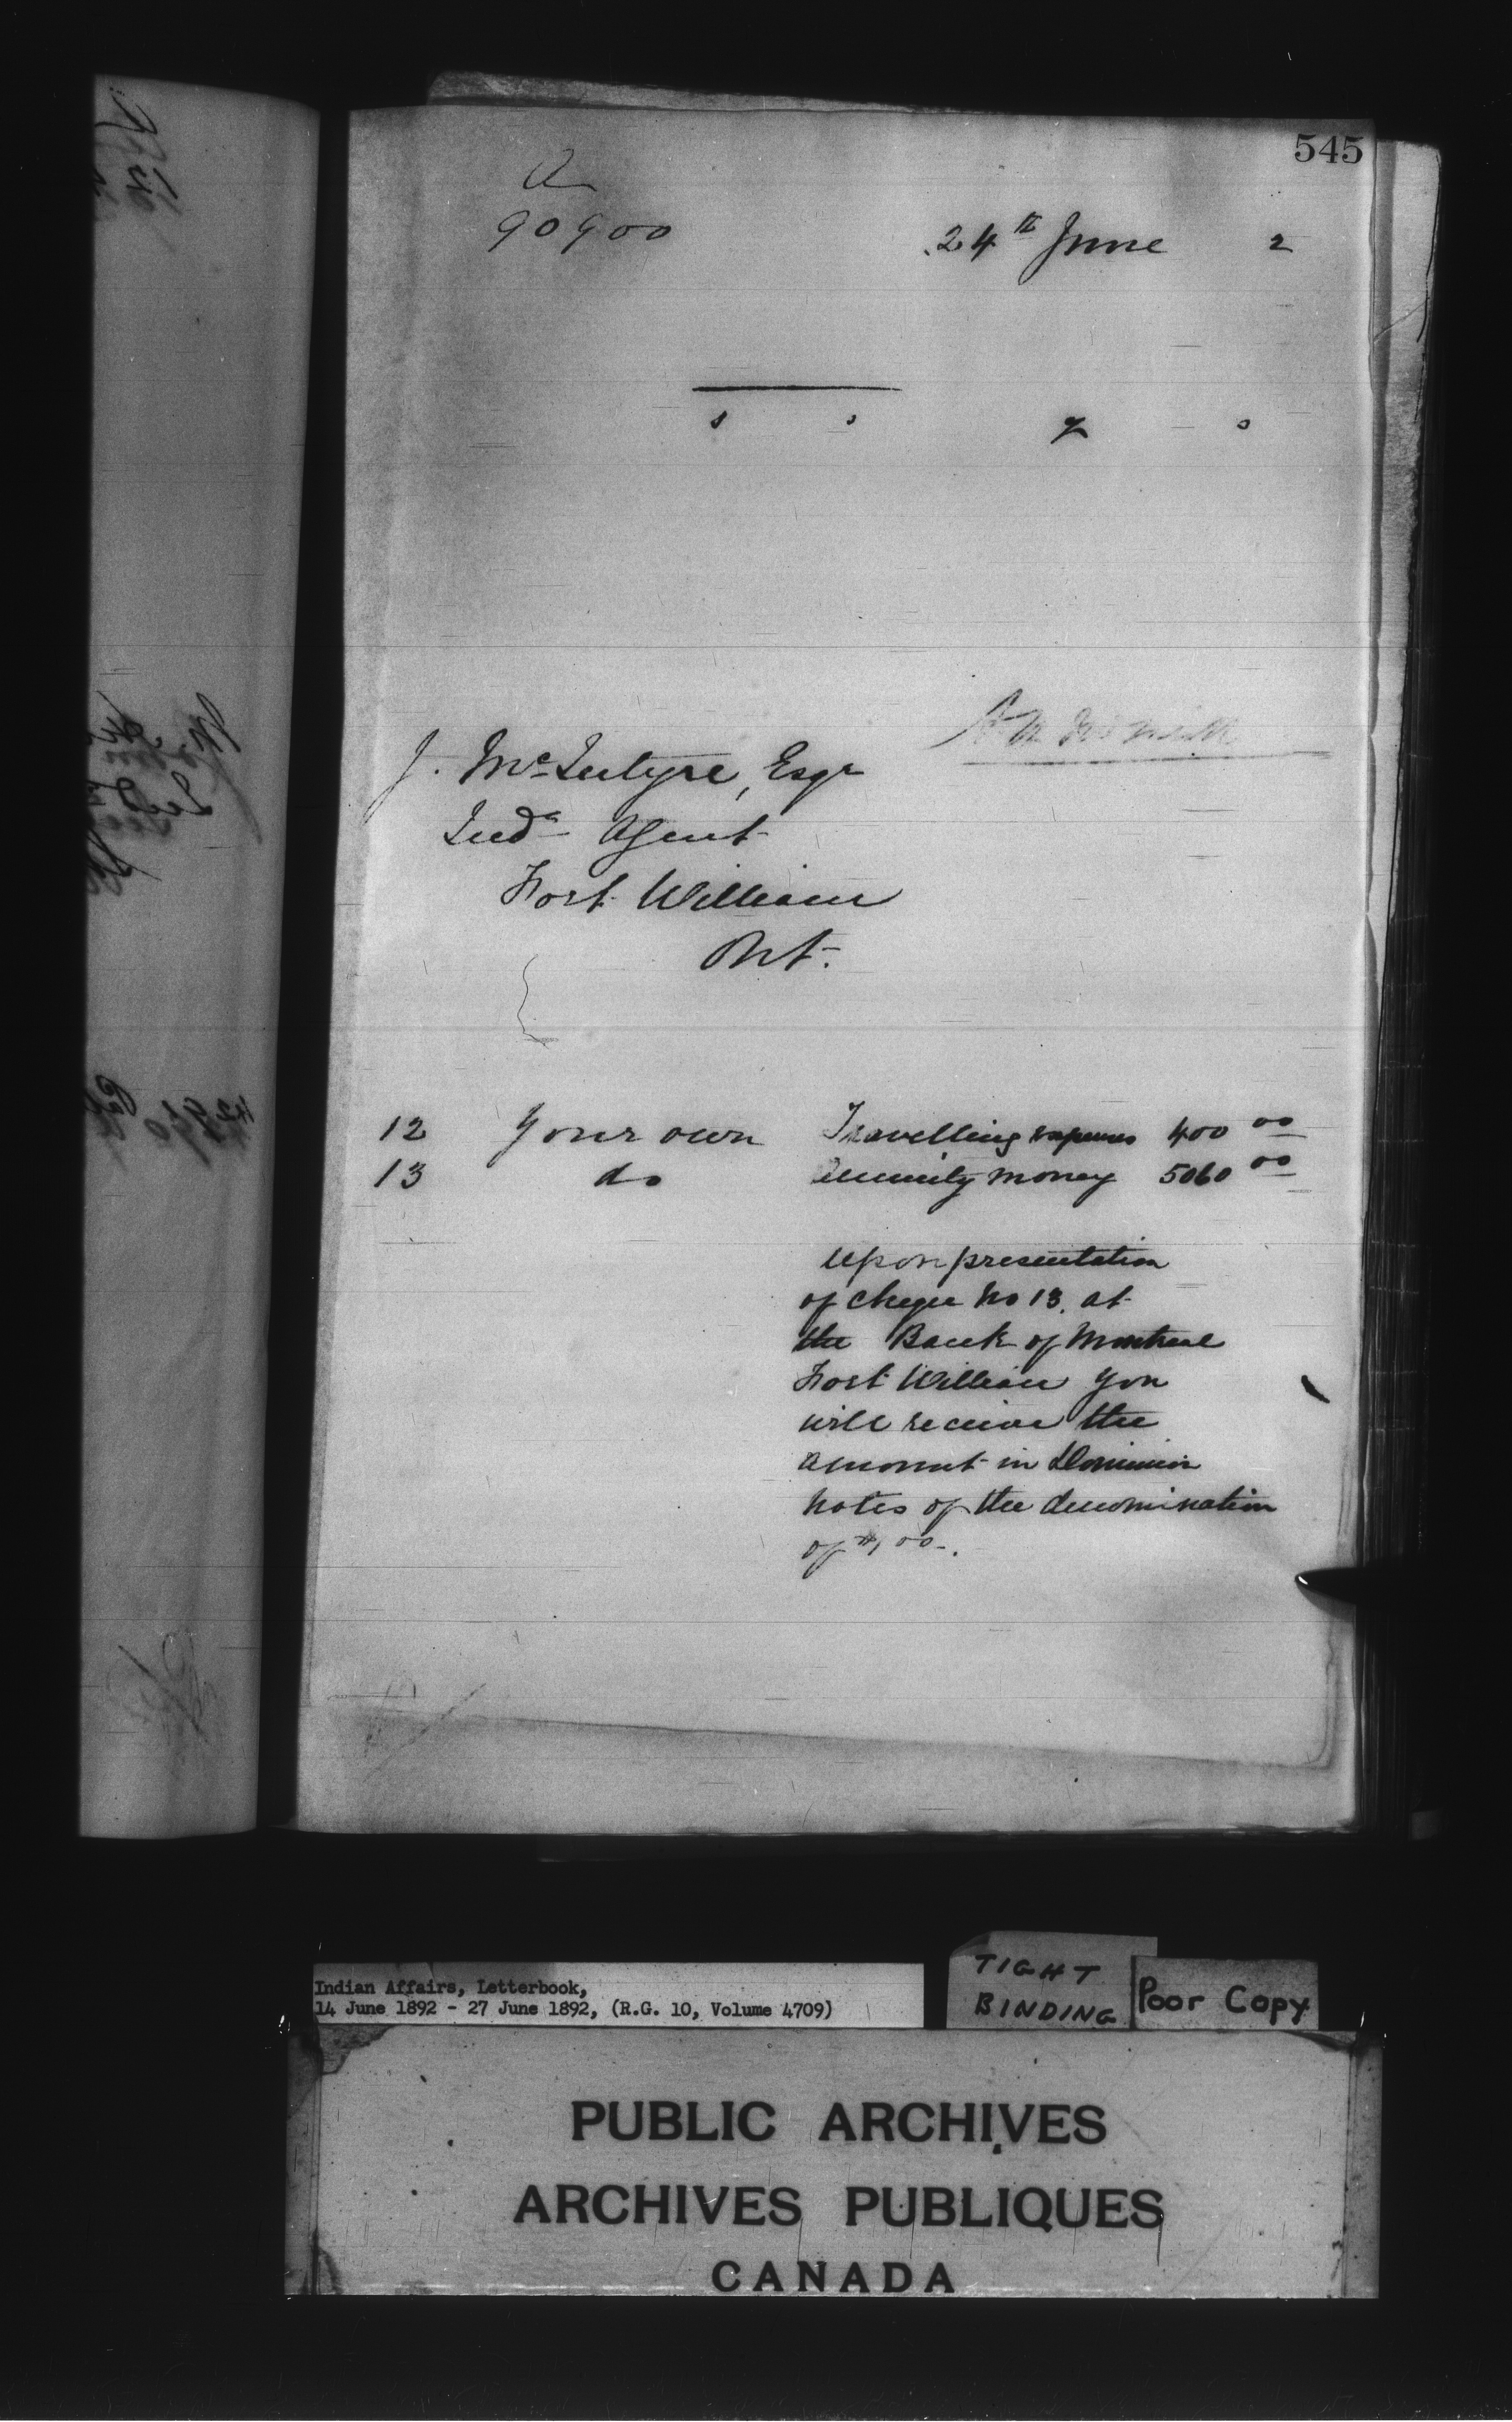 545
A
90900
24th June 2
s s y o
J. McIntyre, Esqr
Indn Agent
Fort William
Ont.
12 Your own Travelling expenses 400 00
13 do Annuity money 5060 00
Upon presentation
of cheque No 13. at
the Bank of Montreal
Fort William you
will receive the
amount in Dominion
notes of the denomination
of $1 00.
Indian Affairs, Letterbook,
14 June 1892 - 27 June 1892, (R.G. 10, Volume 4709)
TIGHT
BINDING
Poor Copy
PUBLIC ARCHIVES
ARCHIVES PUBLIQUES
CANADA